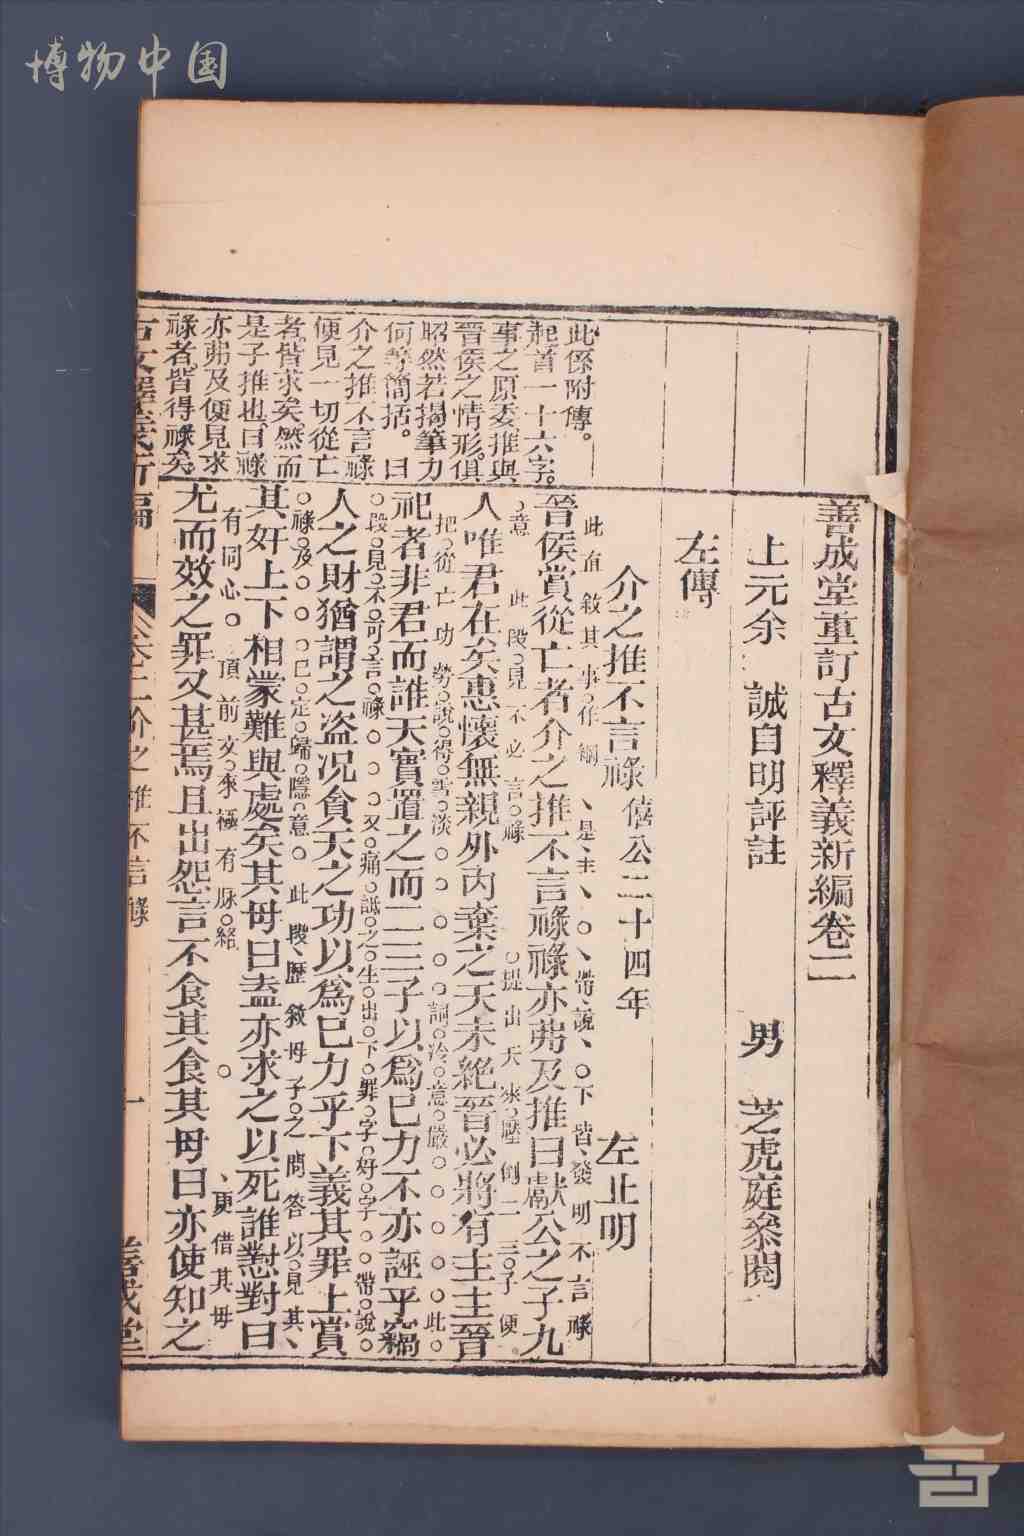 博物中国
善成堂重訂古文釋義新編卷二
上元余 誠自明評註 男 芝虎庭叅閱
左傳
介之推不言祿 僖公二十四年 左丘明
此係附傳。
起首一十六字。
事之原委推與
晉侯之情形。俱
昭然若揭筆力
何等簡括。曰
介之推不言祿
便見一切從亡
者皆求矣。然而
是子推也曰祿
亦弗及便見求
祿者皆得祿矣
晉侯賞從亡者介之推不言祿祿亦弗及推曰獻公之子九
此段見不必言祿 提出天來壓倒二三子便
人唯君在矣惠懷無親外內棄之天未絕晉必將有主主晉
把從亡功勞說得雪淡 詞冷意嚴 此
祀者非君而誰天實置之而二三子以爲己力不亦誣乎竊
段見不可言祿 又痛詆之生出下罪字奸字 帶說
人之財猶謂之盗况貪天之功以爲己力乎下義其罪上賞
祿及 已定歸隱意 此段歷敘母子之問答以見其
其奸上下相蒙難與處矣其母曰盍亦求之以死誰懟對曰
有同心 頂前文來極有脉絡 更借其母
尤而效之罪又甚焉且出怨言不食其食其母曰亦使知之
古文釋義新編 卷二介之推不言祿 一 善成堂